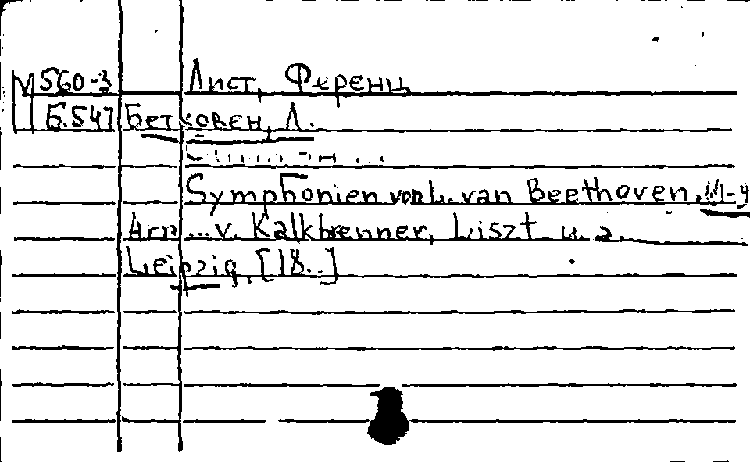 М 560-3 Лист, Ференц
Б.547 Бетховен, Л.
Symphonien von L. van Beethoven.
Arr ... v. Kalkbrenner, Liszt u. a.
Leipzig, [18..]